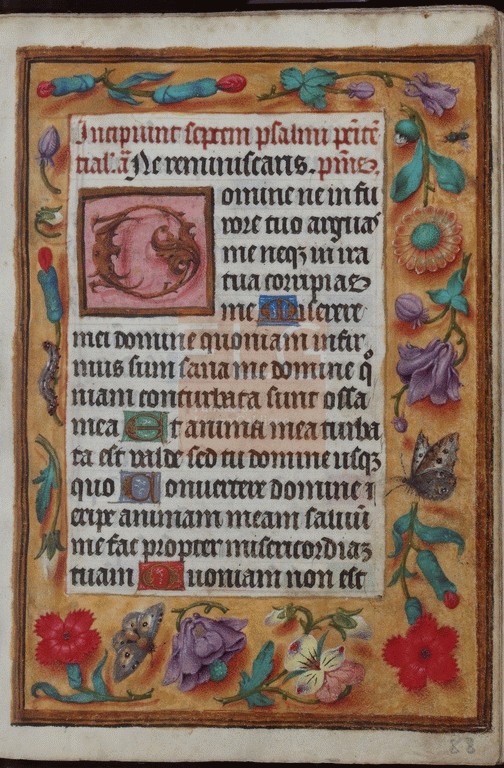 Incipiunt septem psalmi penitē
tial. añ Ne reminiscaris. pmus
Domine ne in fu
rore tuo arguas
me neq; in ira
tua corripias
me Miserere
mei domine quoniam infir
mus sum sana me domine qͦ
niam conturbata sunt ossa
mea Et anima mea turba
ta est valde sed tu domine usq;
quo Conuertere domine ⁊
eripe animam meam saluū
me fac propter misericordiaz
tuam Quoniam non est
88